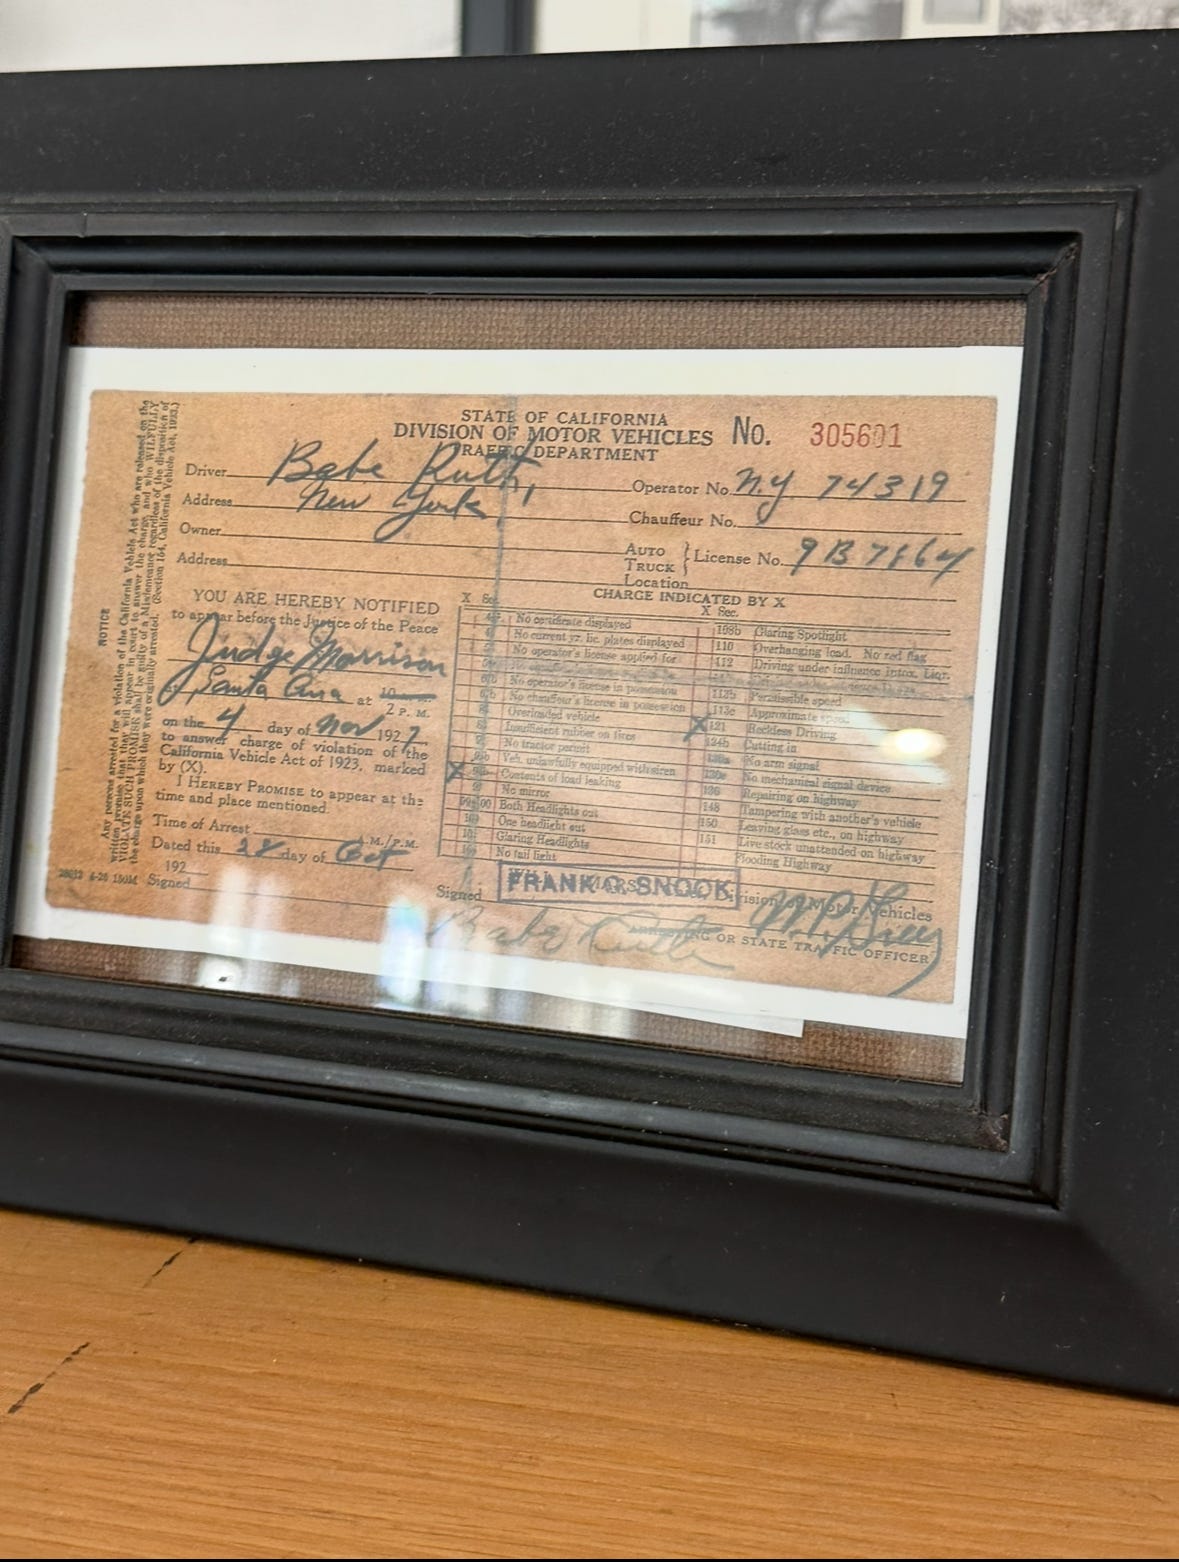 STATE OF CALIFORNIA
DIVISION OF MOTOR VEHICLES No. 305601
TRAFFIC DEPARTMENT
Driver Babe Ruth,
Address New York,
Owner
Address
Operator No. N.Y 74319
Chauffeur No.
AUTO
TRUCK
License No. 9B7164
Location
YOU ARE HEREBY NOTIFIED
to appear before the Justice of the Peace
Judge Morrison
of Santa Ana at 10
2 P. M.
on the 4 day of Nov 1927
to answer charge of violation of the
California Vehicle Act of 1923, marked
by (X).
I HEREBY PROMISE to appear at the
time and place mentioned.
Time of Arrest A.M./P.M.
Dated this 28 day of Oct
192
Signed
CHARGE INDICATED BY X
X Sec.
No certificate displayed
No current yr. lic. plates displayed
No operator's license applied for
No operator's license in possession
No chauffeur's license in possession
Overloaded vehicle
Insufficient rubber on tires
No tractor permit
Veh. unlawfully equipped with siren
X Contents of load leaking
No mirror
Both Headlights out
One headlight out
Glaring Headlights
No tail light
X Sec.
108b Glaring Spotlight
110 Overhanging load. No red flag
112 Driving under influence intox. Liqr.
113b Permissible speed
113c Approximate speed
X 121 Reckless Driving
124b Cutting in
No arm signal
No mechanical signal device
136 Repairing on highway
148 Tampering with another's vehicle
150 Leaving glass etc., on highway
151 Live stock unattended on highway
Flooding Highway
Signed FRANK G. SNOOK Division of Motor Vehicles
Babe Ruth
OR STATE TRAFFIC OFFICER
NOTICE
Any persons arrested for a violation of the California Vehicle Act who are released on the
written promise that they will appear in court to answer the charge, and who WILFULLY
VIOLATE SUCH PROMISE shall be guilty of a Misdemeanor regardless of the disposition of
the charge upon which they were originally arrested. (Section 154, California Vehicle Act, 1923.)